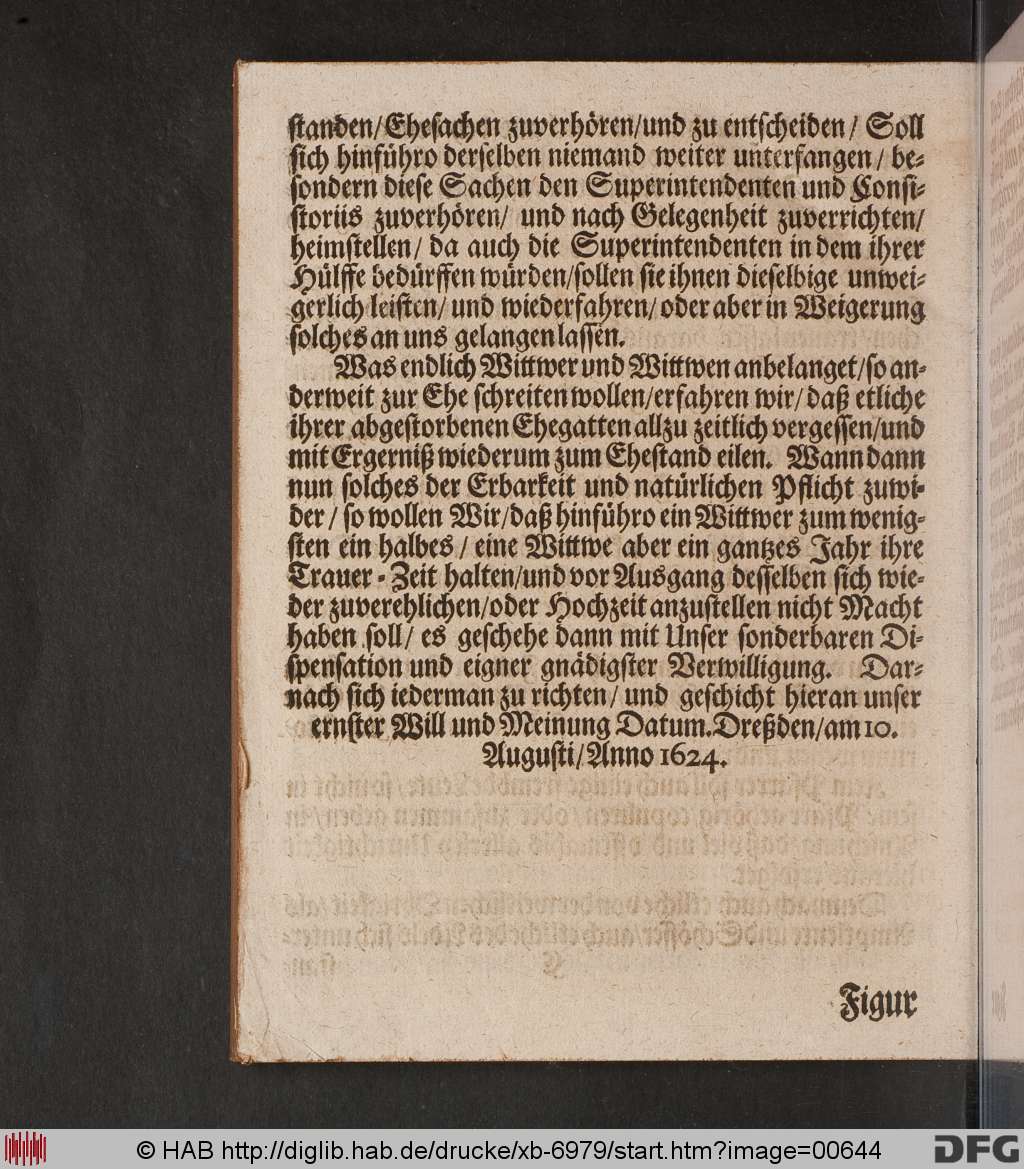 standen/Ehesachen zuverhören/und zu entscheiden/ Soll
sich hinführo derselben niemand weiter unterfangen/ be-
sondern diese Sachen den Superintendenten und Consi-
storiis zuverhören/ und nach Gelegenheit zuverrichten/
heimstellen/ da auch die Superintendenten in dem ihrer
Hülffe bedürffen würden/sollen sie ihnen dieselbige unwei-
gerlich leisten/ und wiederfahren/ oder aber in Weigerung
solches an uns gelangen lassen.
Was endlich Wittwer und Wittwen anbelanget/so an-
derweit zur Ehe schreiten wollen/erfahren wir/ daß etliche
ihrer abgestorbenen Ehegatten allzu zeitlich vergessen/und
mit Ergerniß wiederum zum Ehestand eilen. Wann dann
nun solches der Erbarkeit und natürlichen Pflicht zuwi-
der / so wollen Wir/daß hinführo ein Wittwer zum wenig-
sten ein halbes / eine Wittwe aber ein gantzes Jahr ihre
Trauer-Zeit halten/und vor Ausgang desselben sich wie-
der zuverehlichen/oder Hochzeit anzustellen nicht Macht
haben soll/ es geschehe dann mit Unser sonderbaren Di-
spensation und eigner gnädigster Verwilligung. Dar-
nach sich iederman zu richten/ und geschicht hieran unser
ernster Will und Meinung Datum.Dreßden/am 10.
Augusti/Anno 1624.
Figur
© HAB http://diglib.hab.de/drucke/xb-6979/start.htm?image=00644
DFG